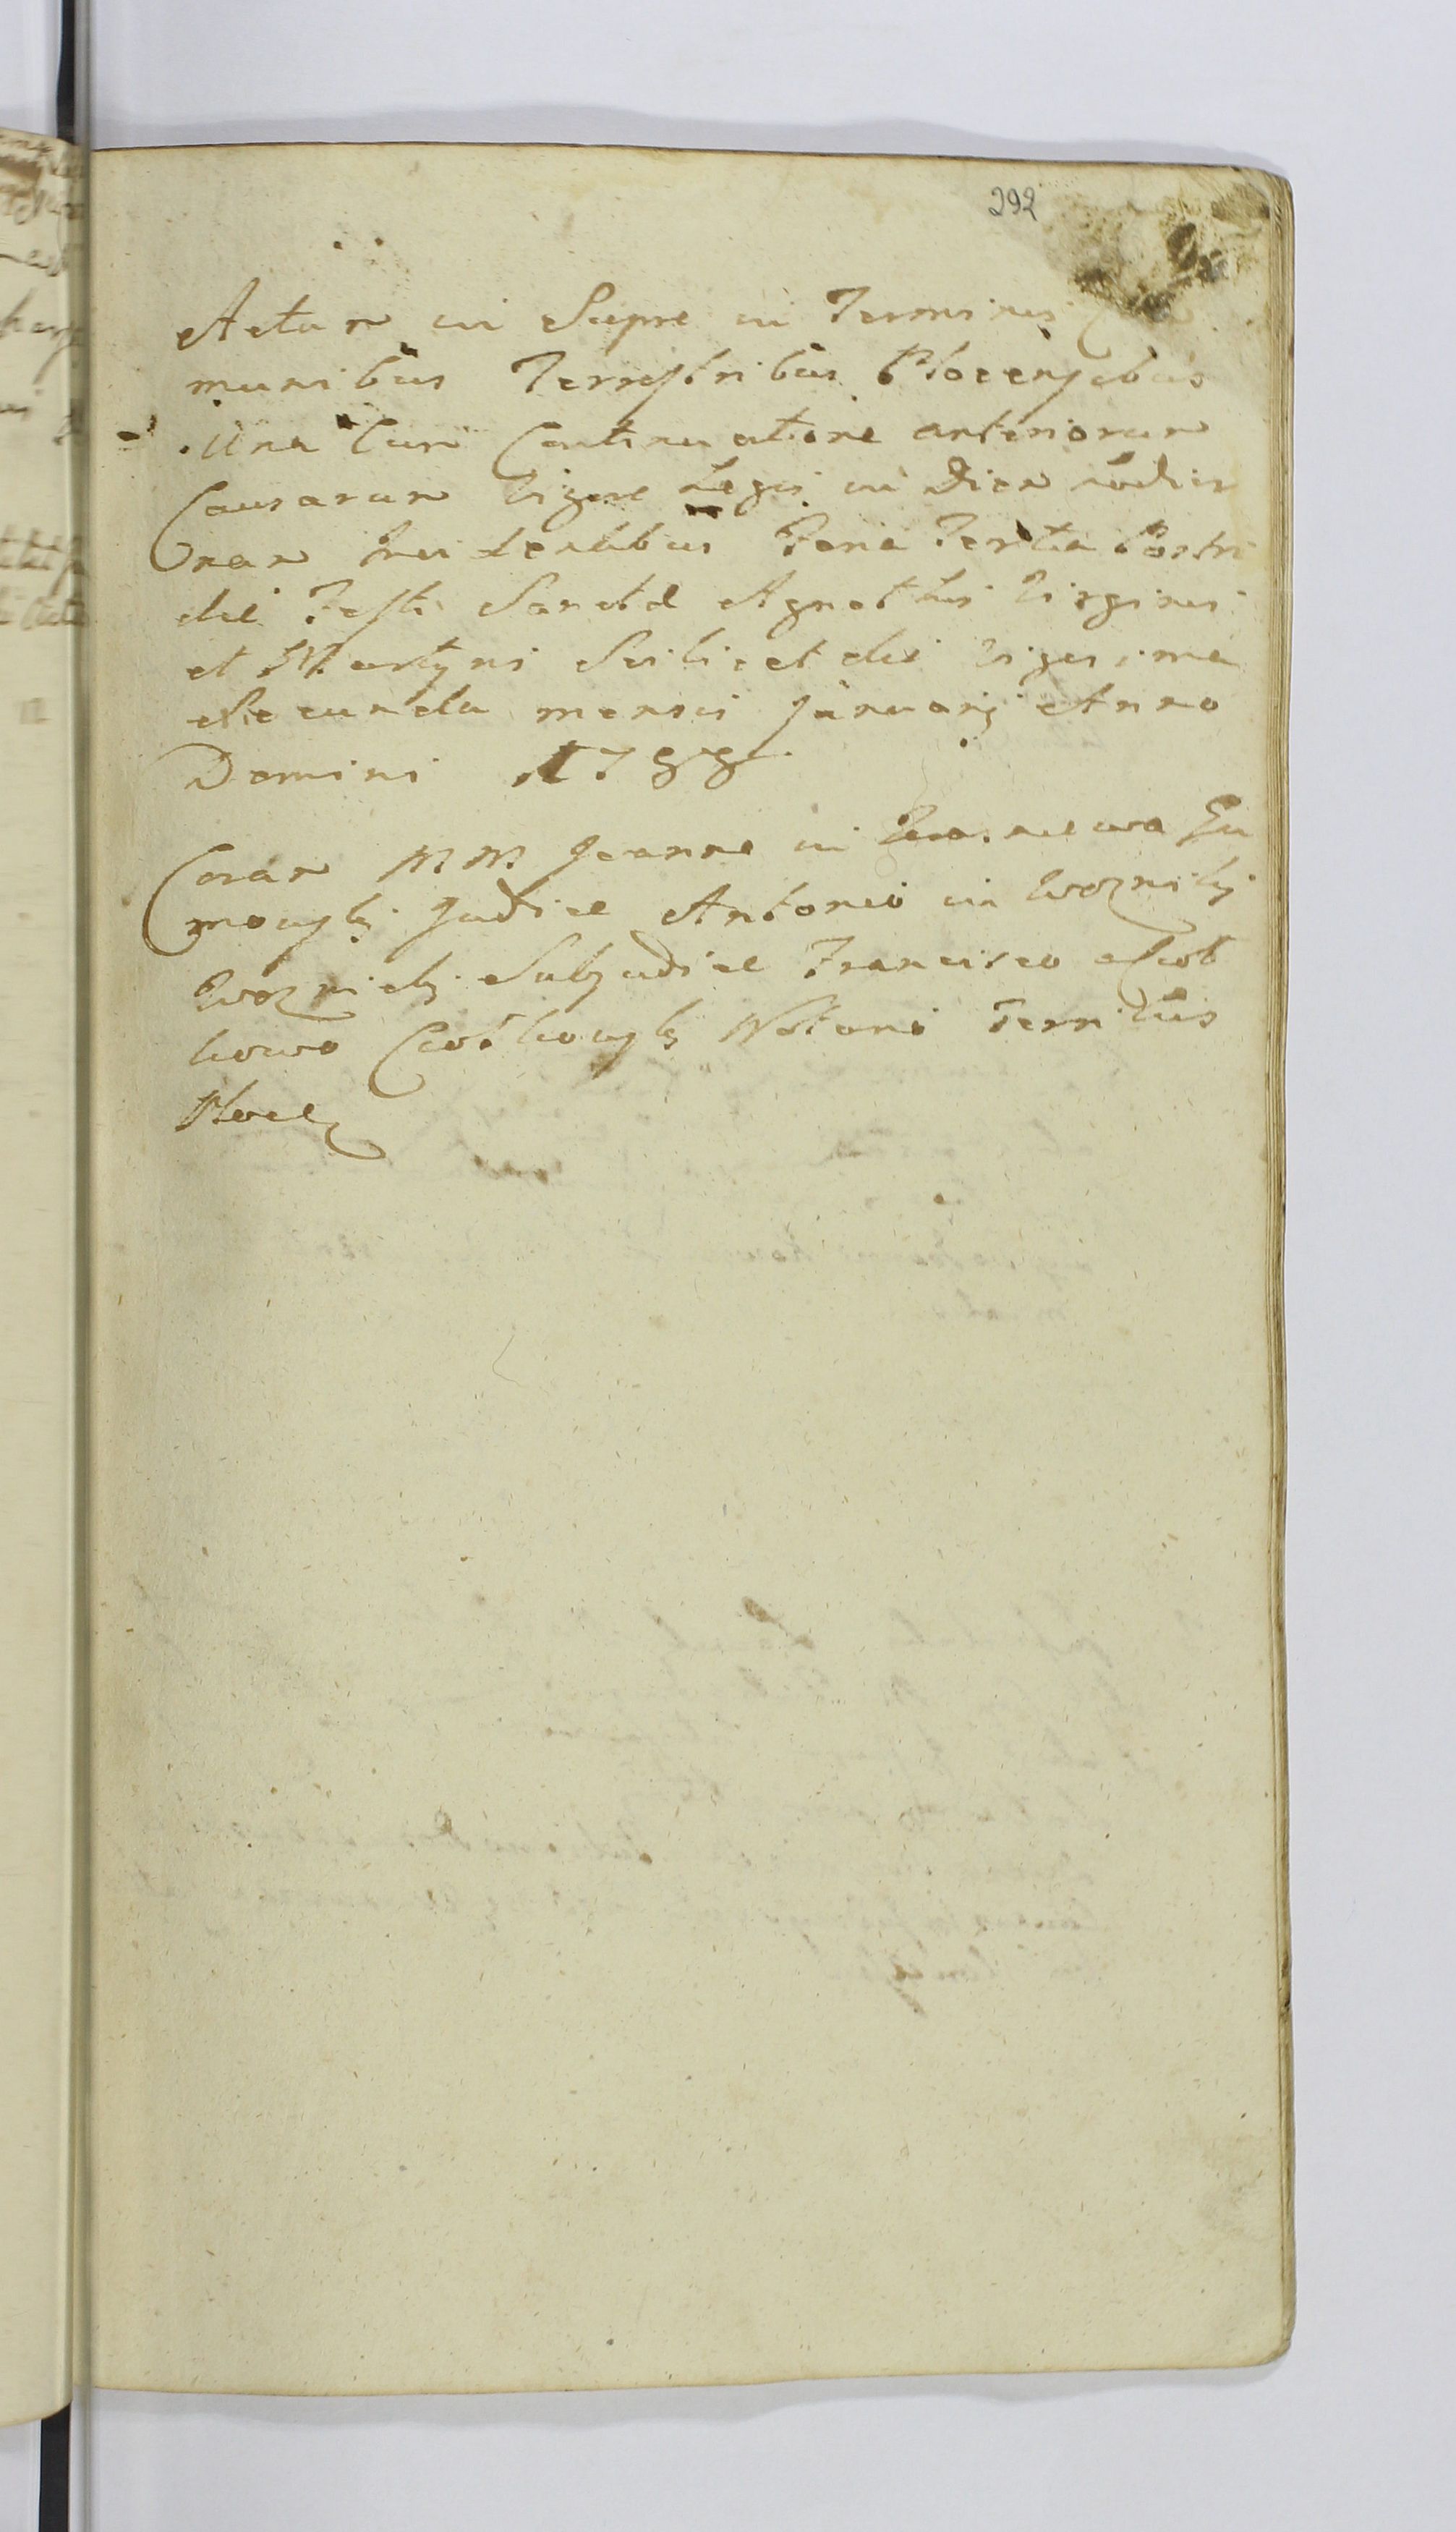 292
Actum in Sierpc in Terminis Com
munibus Terrestribus Plocensibus
Una Cum Continuatione anteriorum
Causarum Vigore Legis in Diem hodier
nam Incidentibus Feria Tertia Postri
die Festi Sanctae Agnethis Virginis
et Martyris Scilicet die vigesima
Secunda mensis Januarij Anno
Domini 1788
Coram M. M. Joanne in
Judice Antonio in Wozniki
Woznicki Subjudice Francisco
Notario Terribus
Plocen